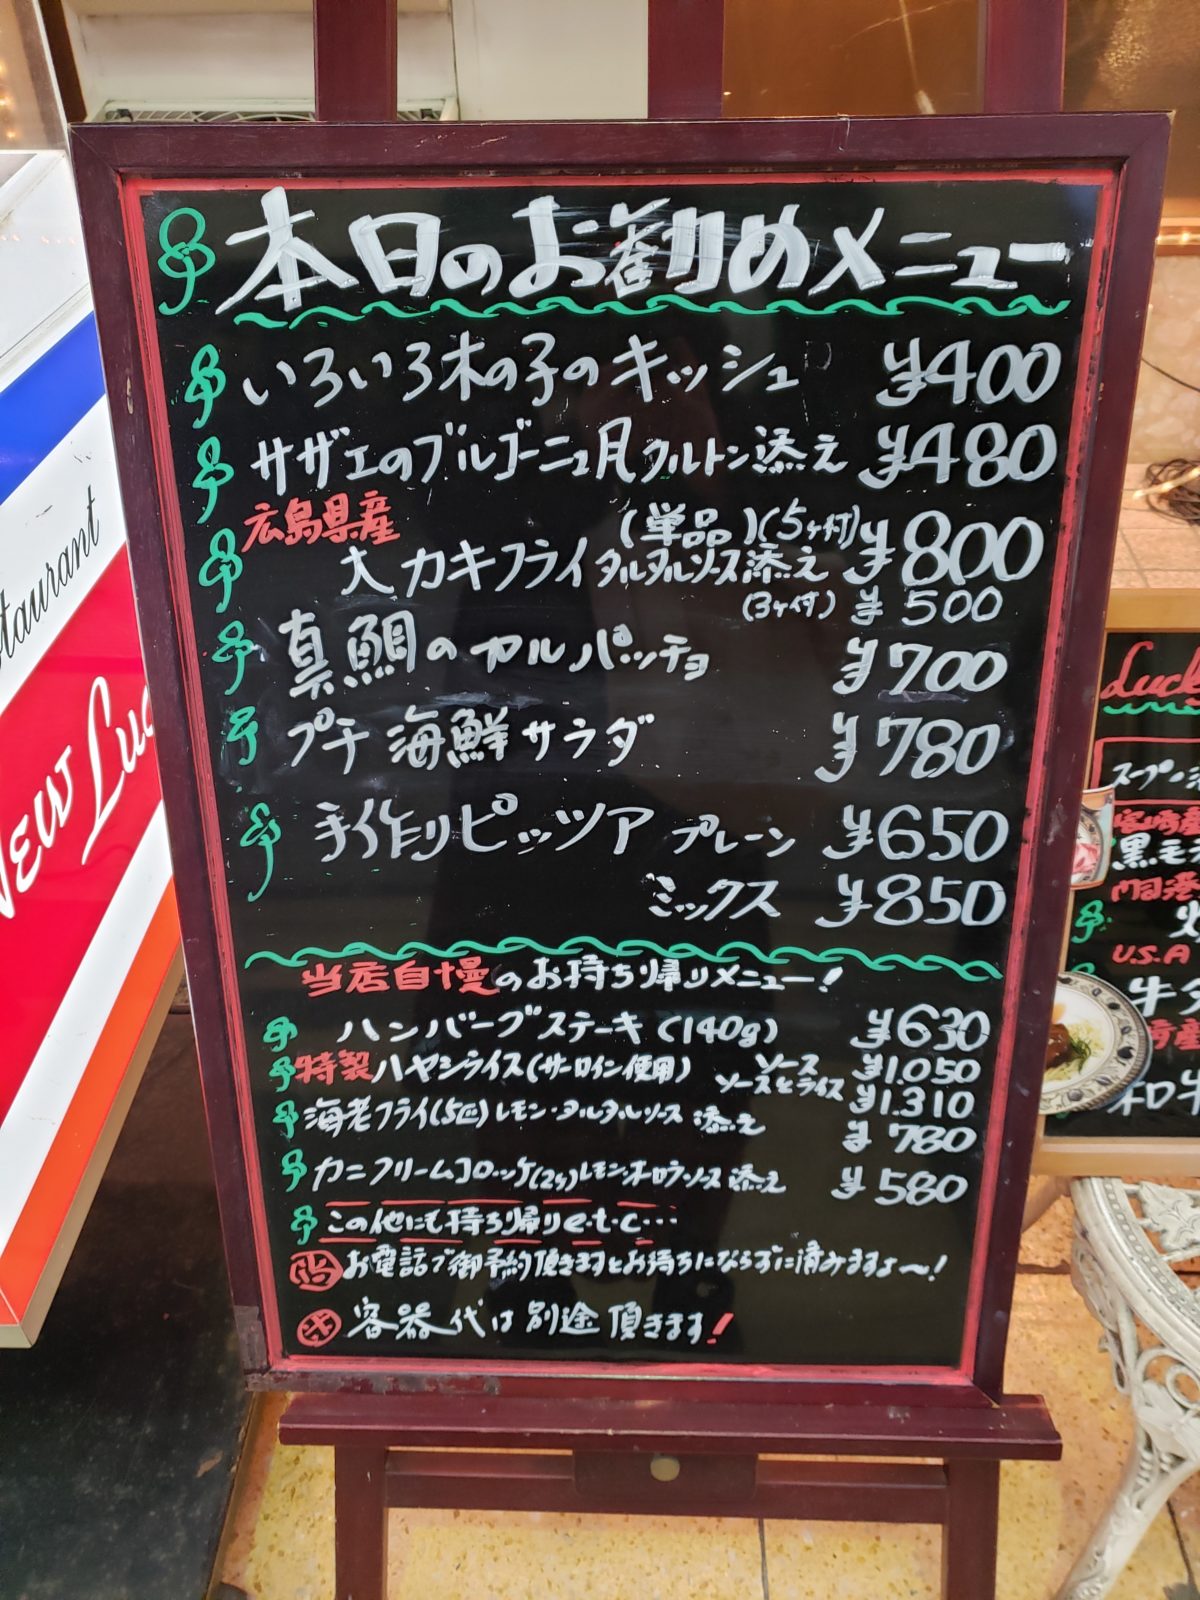 本日のお勧めメニュー
いろいろ木の子のキッシュ ¥400
サザエのブルゴーニュ風クルトン添え ¥480
広島県産
大カキフライ タルタルソース添え (単品)(5ヶ付) ¥800
(3ヶ付) ¥500
真鯛のカルパッチョ ¥700
プチ海鮮サラダ ¥780
手作りピッツア プレーン ¥650
ミックス ¥850
当店自慢のお持ち帰りメニュー!
ハンバーグステーキ(140g) ¥630
特製ハヤシライス(サーロイン使用) ソース ¥1.050
ソースとライス ¥1.310
海老フライ(5匹)レモン・タルタルソース添え ¥780
カニクリームコロッケ(2ヶ)レモン・オーロラソース添え ¥580
この他にも持ち帰りe.t.c…
お電話で御予約頂きますとお持ちにならずに済みますよ〜!
容器代は別途頂きます!
taurant
New Luc
Luck
スプ
黒モ
門司港
U.S.A
牛タ
和牛